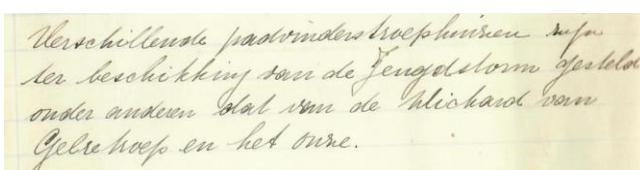 Verschillende padvinderstroephuizen zijn
ter beschikking van de Jeugdstorm gesteld
onder anderen dat van de Wichard van
Gelretroep en het onze.